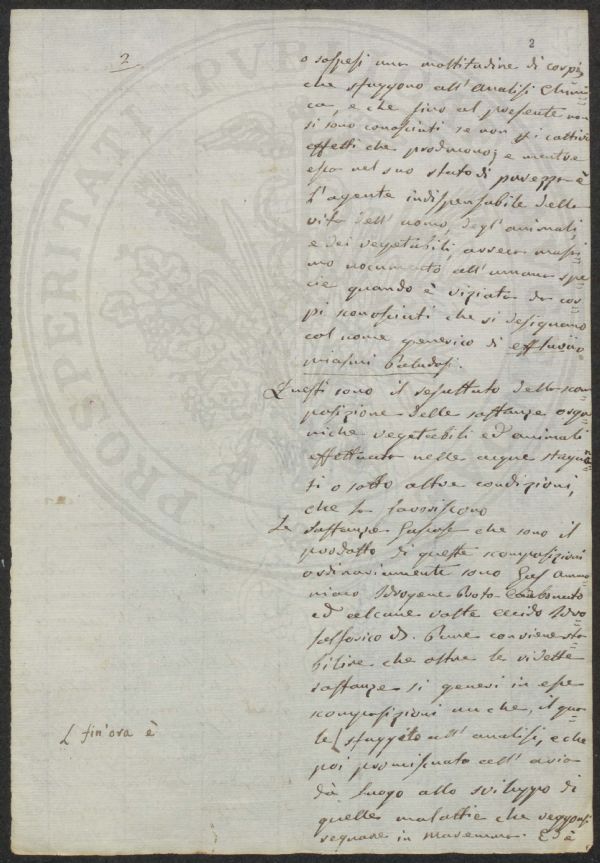 2
2
o sospesi una moltitudine di corpi,
che sfuggono all'Analisi Chimi=
ca, e che fino al presente non
si sono conosciuti se non pei cattivi
effetti che producono; e mentre
essa nel suo stato di purezza è
l'agente indispensabile della
vita dell'uomo, degl'animali,
e dei vegetabili, massi=
mo nocumento all'umana spe=
cie quando è viziata da cor=
pi sconosciuti che si designano
col nome generico di effluvii o
miasmi Paludosi.
Questi sono il resultato della scom=
posizione delle sostanze orga=
niche vegetabili ed animali
effettuata nelle acque stagnan=
ti o sotto altre condizioni,
che la favoriscono
Le sostanze Gassose che sono il
prodotto di queste scomposizioni
ordinariamente sono Gas Ammo=
niaco Idrogene Proto Carbonato
ed alcune volte acido Idro=
solforico. Pure conviene sta=
bilire che oltre le vedette
sostanze si generi in esse
scomposizioni anche, il qua=
le sfuggito all'analisi, e che
poi promiscuato all'aria
dà luogo allo sviluppo di
quelle malattie che veggonsi
regnare in Maremma. Ed è
L fin'ora è